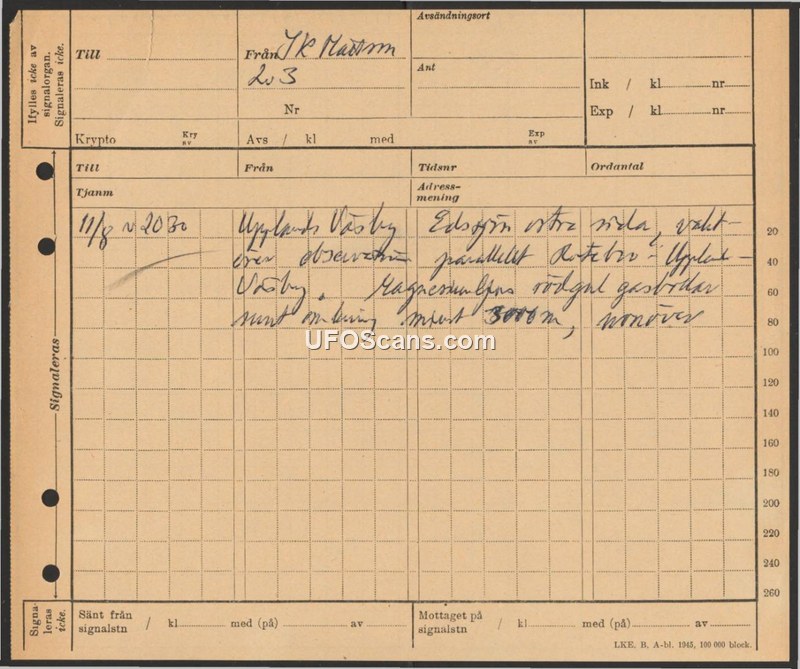 Ifylles icke av signalorgan. Signaleras icke.
Till
Från
2 3
Nr
Krypto Kry av
Avs / kl med
Avsändningsort
Ant
Exp av
Ink / kl nr
Exp / kl nr
Till Från Tidsnr Ordantal
Tjanm Adress-
mening
11/8 2030 Upplands Väsby Edssjön östra sida, 20
över parallellt Rotebro - Uppland- 40
Väsby. rödgul 60
omkring 3000 m, 80
UFOScans.com
100
120
140
160
180
200
220
240
260
Signaleras
Signa-
leras
icke.
Sänt från
signalstn / kl med (på) av
Mottaget på
signalstn / kl med (på) av
LKE. B. A-bl. 1945, 100 000 block.